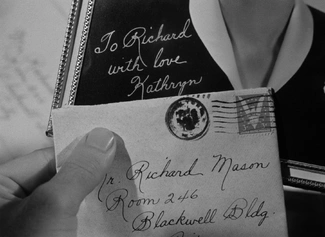 To Richard
with love
Kathryn
Mr Richard Mason
Room 246
Blackwell Bldg.